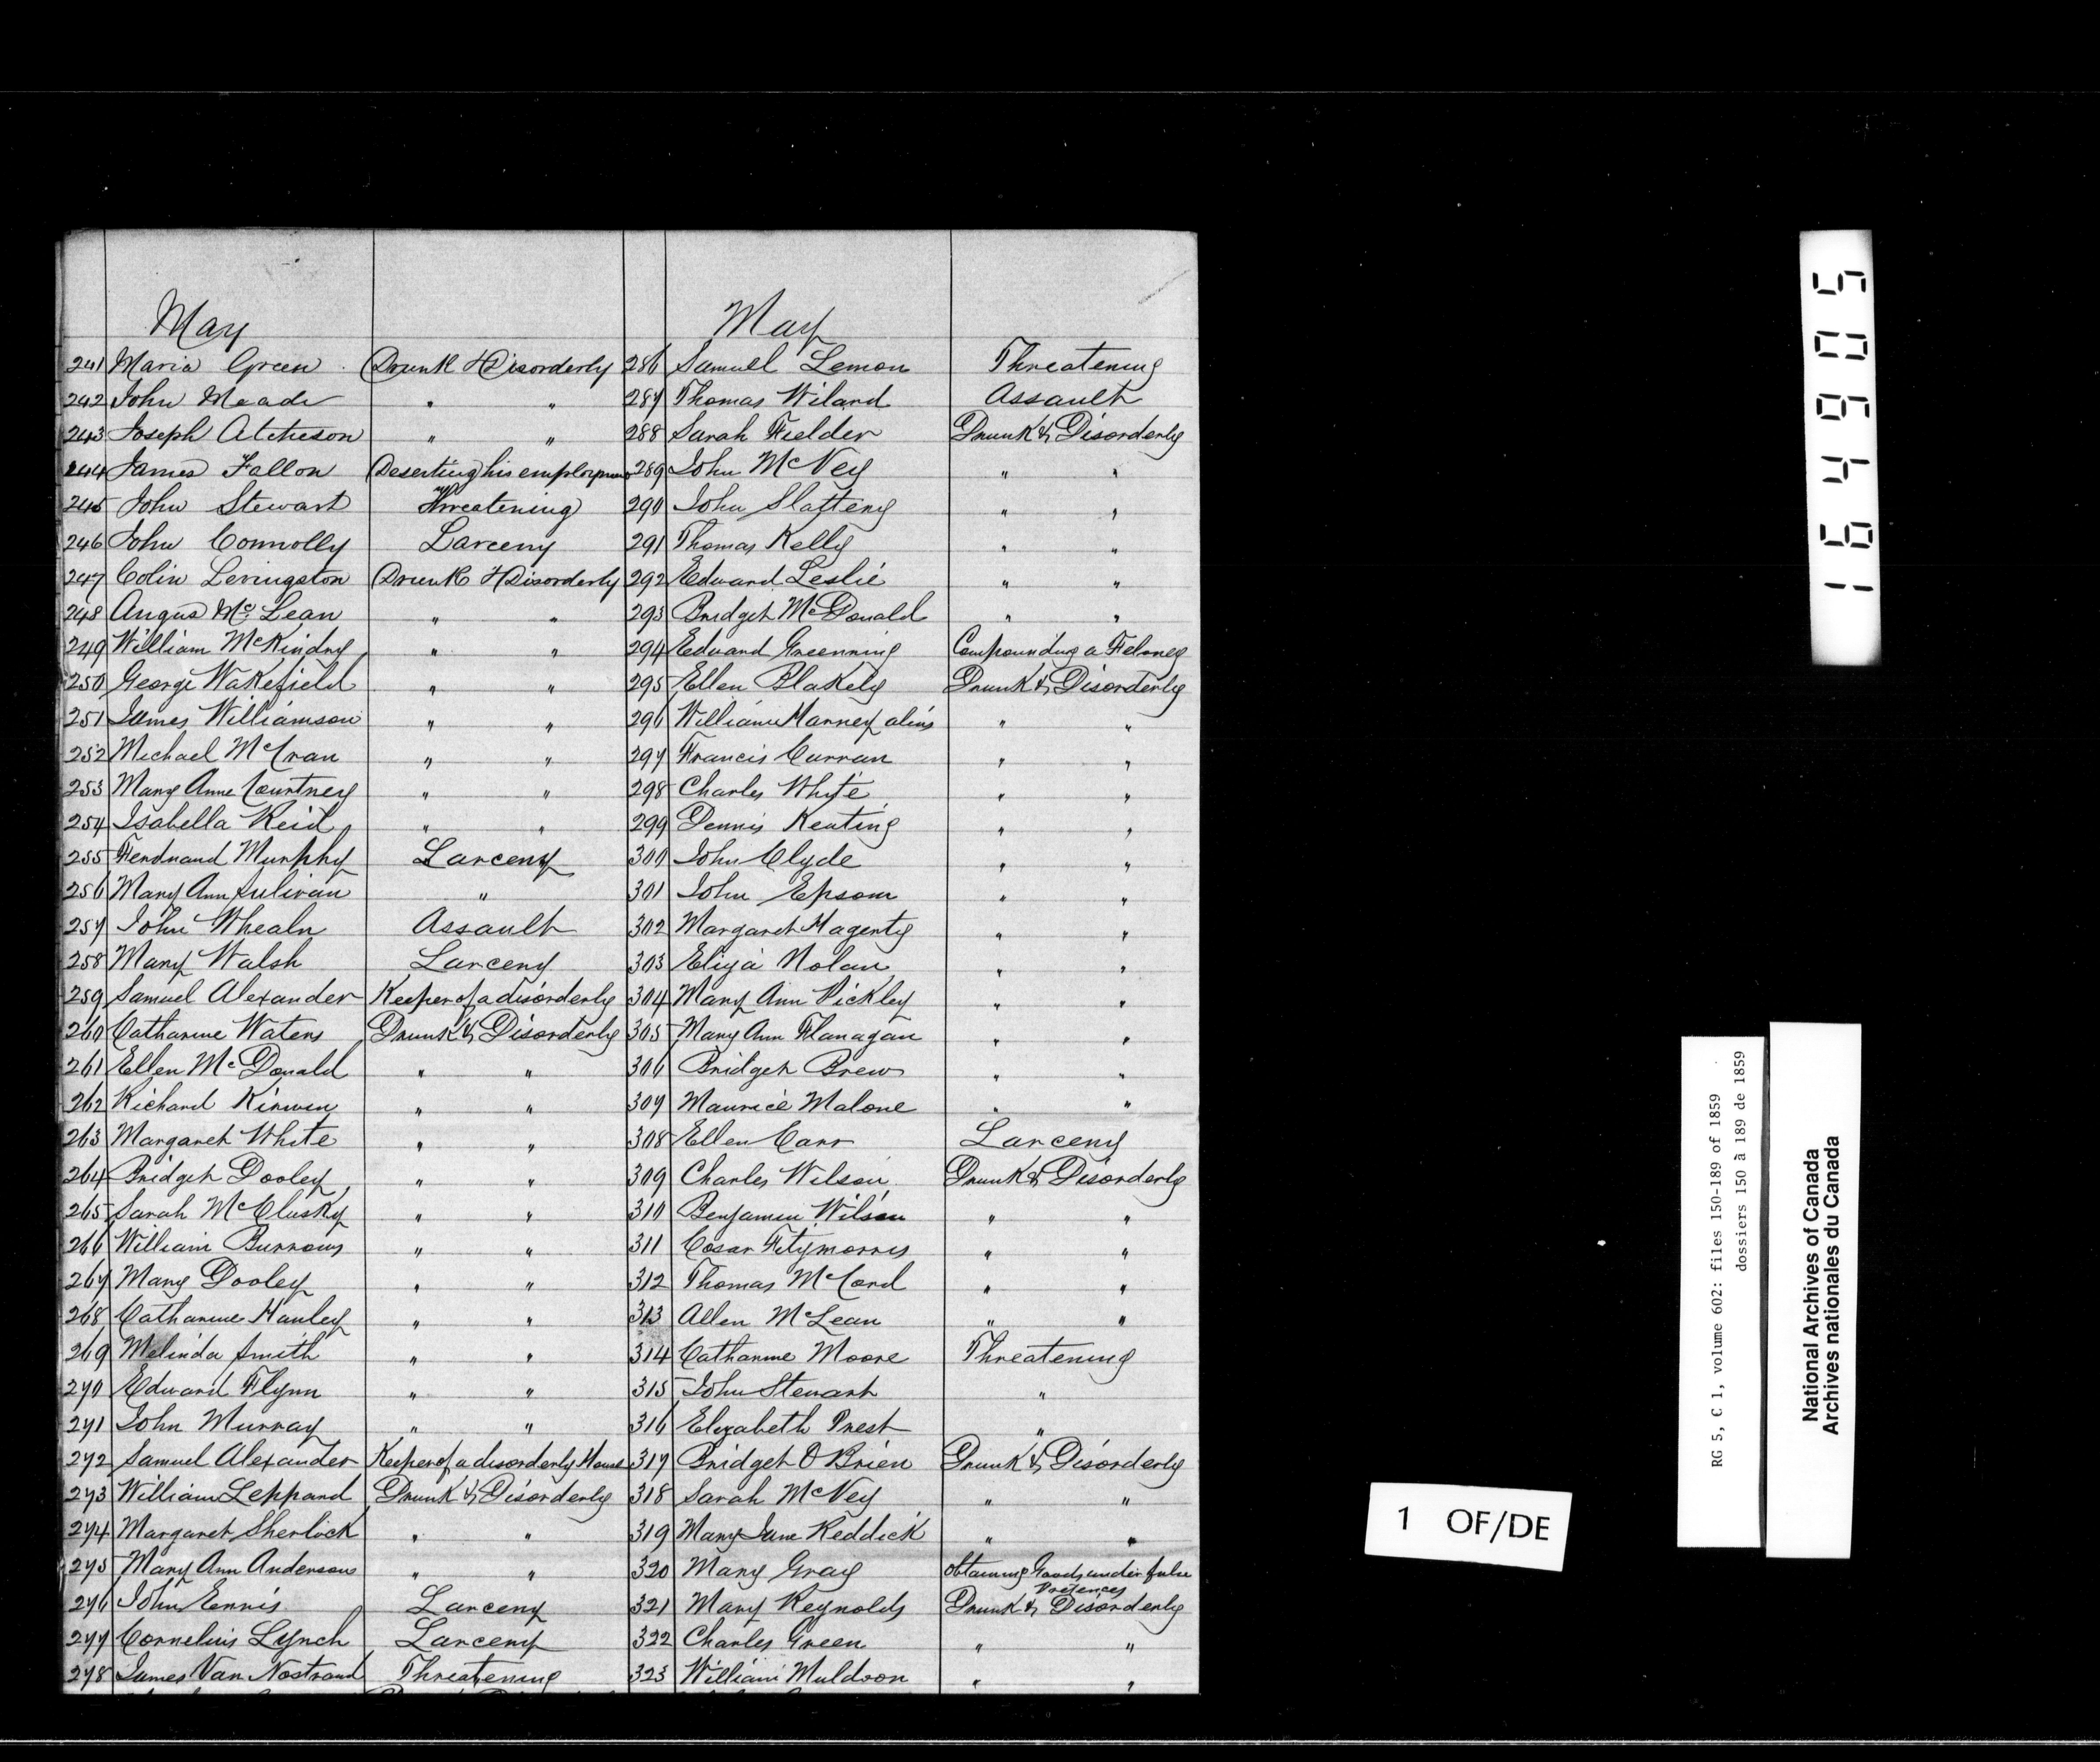 May
241 Maria Green Drunk & Disorderly
242 John Meade " "
243 Joseph Atcheson " "
244 James Fallon Deserting his employment
245 John Stewart Threatening
246 John Connolly Larceny
247 Colin Levingston Drunk & Disorderly
248 Angus McLean " "
249 William McKindry " "
250 George Wakefield " "
251 James Williamson " "
252 Michael McCran " "
253 Mary Anne Courtney " "
254 Isabella Reid " "
255 Ferdnand Murphy Larceny
256 Mary Ann Sulivan "
257 John Whealn Assault
258 Mary Walsh Larceny
259 Samuel Alexander Keeper of a disorderly
260 Catharine Waters Drunk & Disorderly
261 Ellen McDonald " "
262 Richard Kirwin " "
263 Margaret White " "
264 Bridget Dooley " "
265 Sarah McClusky " "
266 William Burrows " "
267 Mary Dooley " "
268 Catharine Hanley " "
269 Melinda Smith " "
270 Edward Flynn " "
271 John Murray " "
272 Samuel Alexander Keeper of a disorderly House
273 William Leppard Drunk & Disorderly
274 Margaret Sherlock " "
275 Mary Ann Anderson " "
276 John Ennis Larceny
277 Cornelius Lynch Larceny
278 James Van Nostrand Threatening
May
286 Samuel Lemon Threatening
287 Thomas Wiland Assault
288 Sarah Fielder Drunk & Disorderly
289 John McVey " "
290 John Slattery " "
291 Thomas Kelly " "
292 Edward Leslie " "
293 Bridget McDonald " "
294 Edward Greenning Compounding a Feloney
295 Ellen Blakely Drunk & Disorderly
296 William Harney alias " "
297 Francis Curran " "
298 Charles White " "
299 Dennis Keating " "
300 John Clyde " "
301 John Epsom " "
302 Margaret Hagerty " "
303 Eliza Nolan " "
304 Mary Ann Pickley " "
305 Mary Ann Flanagan " "
306 Bridget Brew " "
307 Maurice Malone " "
308 Ellen Carr Larceny
309 Charles Wilson Drunk & Disorderly
310 Benjamin Wilson " "
311 Cosar Fitzmorris " "
312 Thomas McCord " "
313 Allen McLean " "
314 Catharine Moore Threatening
315 John Stewart "
316 Elizabeth Prest "
317 Bridget O Brien Drunk & Disorderly
318 Sarah McVey " "
319 Mary Jane Reddick " "
320 Mary Gray obtaining Goods under false
Pretences
321 Mary Reynolds Drunk & Disorderly
322 Charles Green " "
323 William Muldoon " "
164905
RG 5, C 1, volume 602: files 150-189 of 1859
dossiers 150 à 189 de 1859
National Archives of Canada
Archives nationales du Canada
1 OF/DE